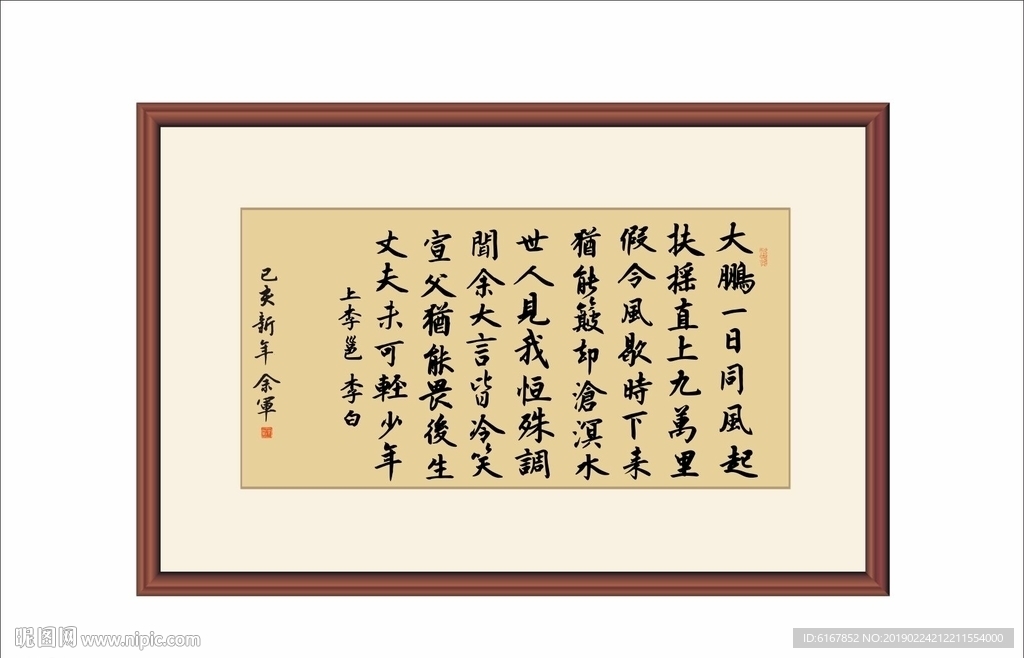 大鵬一日同風起
扶搖直上九萬里
假令風歇時下来
猶能簸却滄溟水
世人見我恒殊調
聞余大言皆冷笑
宣父猶能畏後生
丈夫未可輕少年
上李邕 李白
己亥新年 余軍
昵图网 www.nipic.com
ID:6167852 NO:20190224212211554000